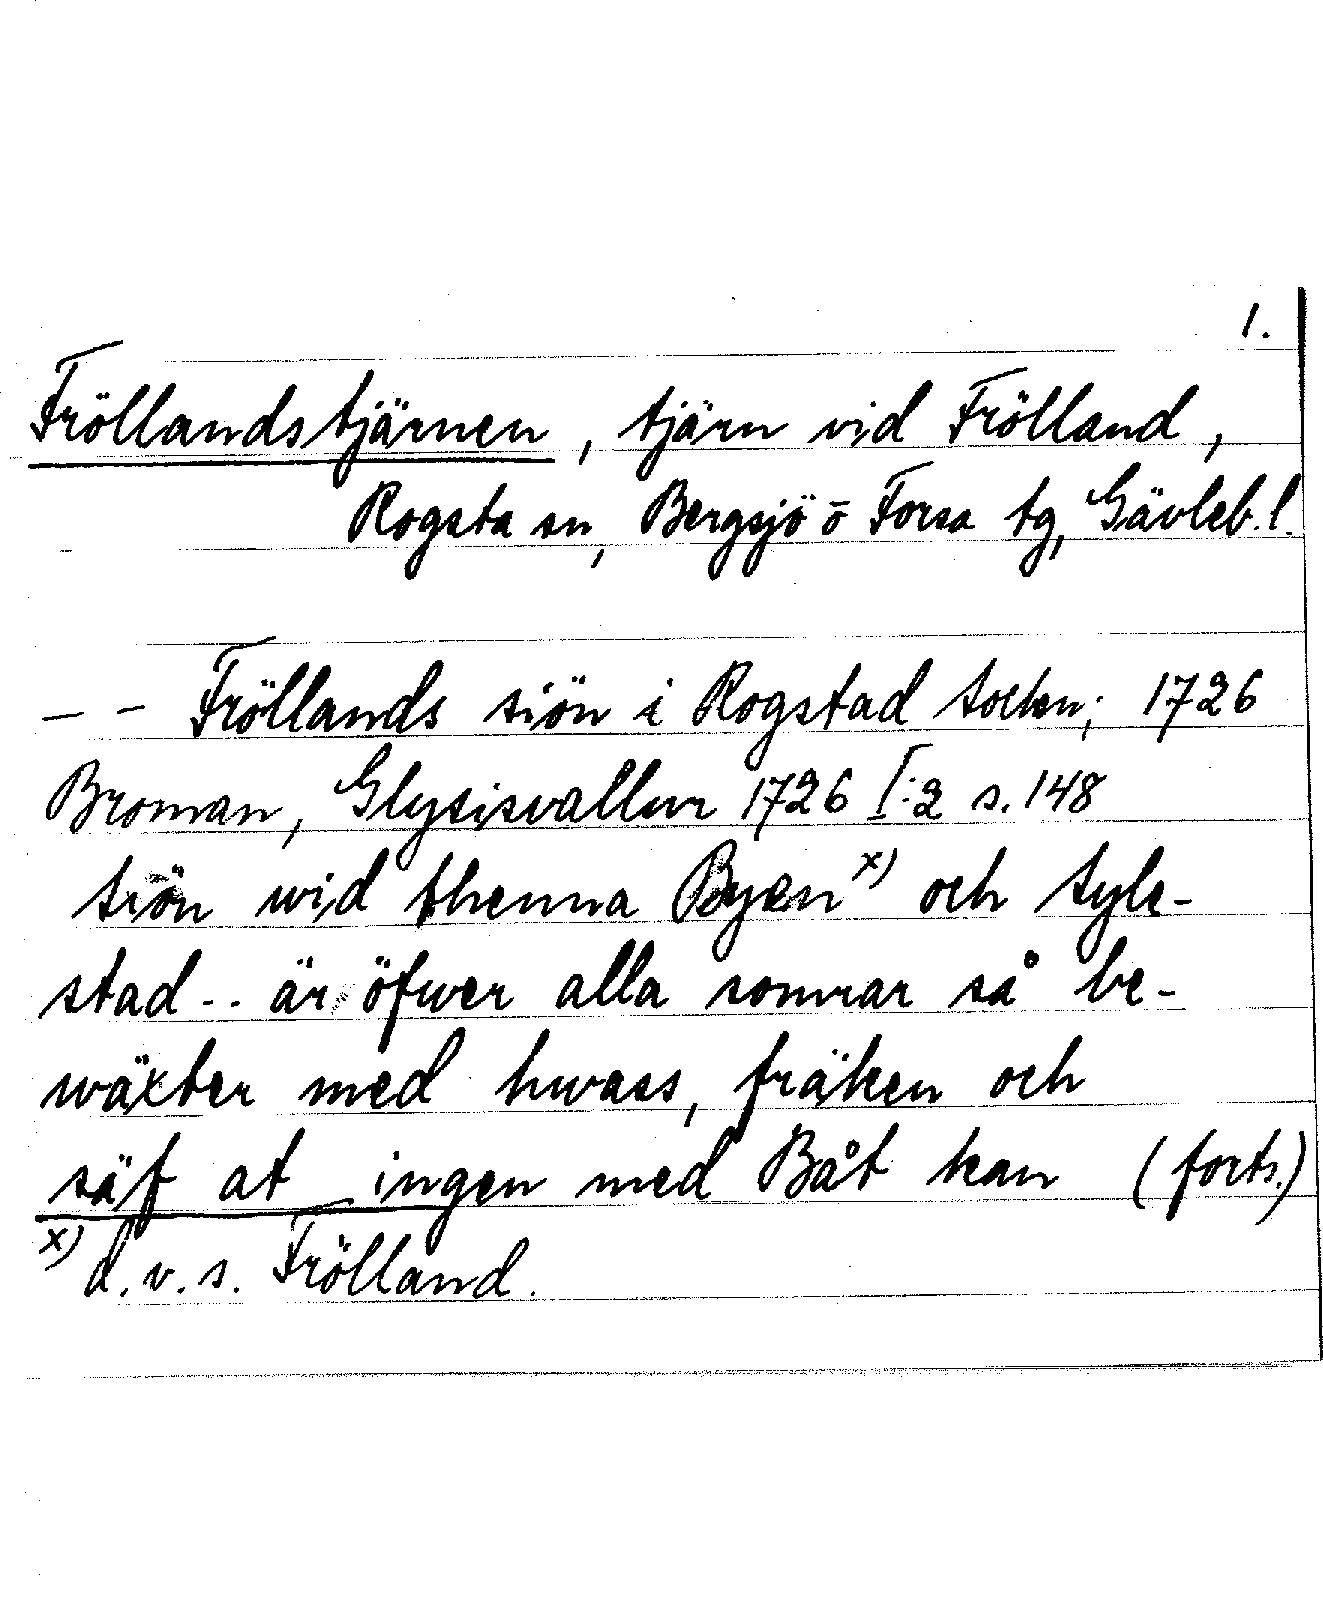 1.
Fröllandstjärnen, tjärn vid Frölland,
Rogsta sn, Bergsjö o Forsa tg, Gävleb. l.
- - Fröllands siön i Rogstad Socken; 1726
Broman, Glysisvallur 1726 I:2 s. 148
Siön wid thenna Byen x) och Syle-
stad - - är öfwer alla somrar så be-
wäxter med hwass, fräken och
säf at ingen med Båt kan (forts.)
x) d.v.s. Frölland.